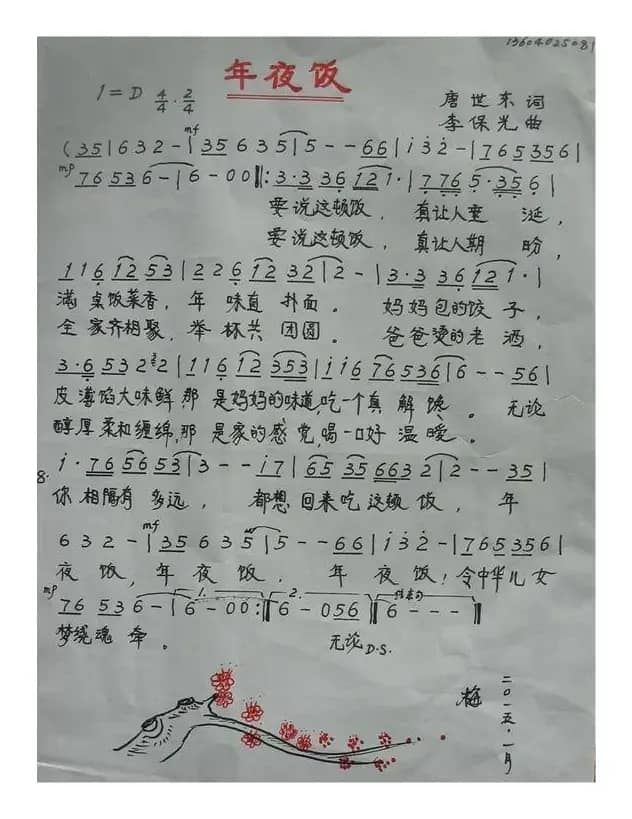 13604025081
年夜饭
1=D 4/4 · 2/4
唐世东 词
李保光 曲
mf
( 35 | 6 3 2 - | 35 6 3 5 | 5 - - 66 | i 3 2 - | 765356 |
mp 76 53 6 - | 6 - 0 0 ‖: 3·3 36 12 1· | 776 5·35 6 |
要说这顿饭， 真让人垂 涎，
要说这顿饭， 真让人期 盼，
1 1 6 12 53 | 2 2 6 12 32 | 2 - | 3·3 36 12 1· |
满 桌饭菜香， 年 味直 扑面。 妈妈包的饺 子，
全 家齐相聚， 举 杯共 团圆。 爸爸烫的老 酒，
3·6 53 2 2 | 1 1 6 12 353 | i i 6 76536 | 6 - - 56 |
皮薄馅大味鲜，那 是妈妈的味道，吃一个真 解馋。 无论
醇厚柔和缠绵，那 是家的感觉，喝一口好 温暖。
i· 76 56 53 | 3 - - i7 | 65 35 663 2 | 2 - - 35 |
你 相隔有 多远， 都想 回来吃这顿 饭， 年
mf
6 3 2 - | 35 6 3 5 | 5 - - 66 | i 3 2 - | 765356 |
夜 饭， 年 夜饭， 年 夜饭！令中华儿女
mp 76 53 6 - | 1. 6 - 0 0 :‖ 2. 6 - 056 ‖ 结束句 6 - - - ‖
梦绕魂 牵。 无论 D.S.
梅
二〇一五·一月